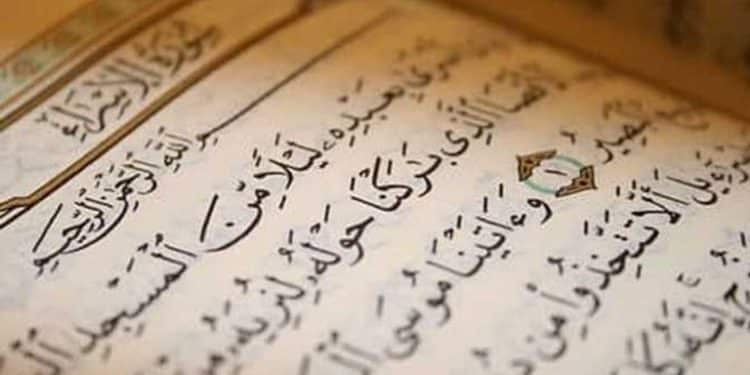 سُورَةُ الإِسْرَاءِ
بِسْمِ ٱللَّهِ ٱلرَّحْمَٰنِ ٱلرَّحِيمِ
بِعَبْدِهِۦ لَيْلًا مِّنَ ٱلْمَسْجِدِ
ٱلَّذِى بَٰرَكْنَا حَوْلَهُۥ لِنُرِيَهُۥ
١ وَءَاتَيْنَا مُوسَى
أَلَّا تَتَّخِذُوا۟ مِن
إِنَّهُۥ